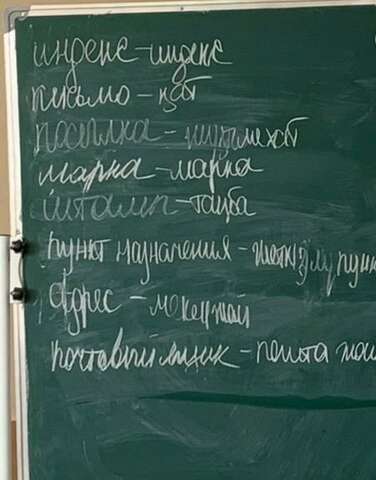 индекс - индекс
письмо - қат
посылка -
марка - марка
штамп - таңба
пункт назначения -
Адрес - мекенжай
почтовый ящик - пошта